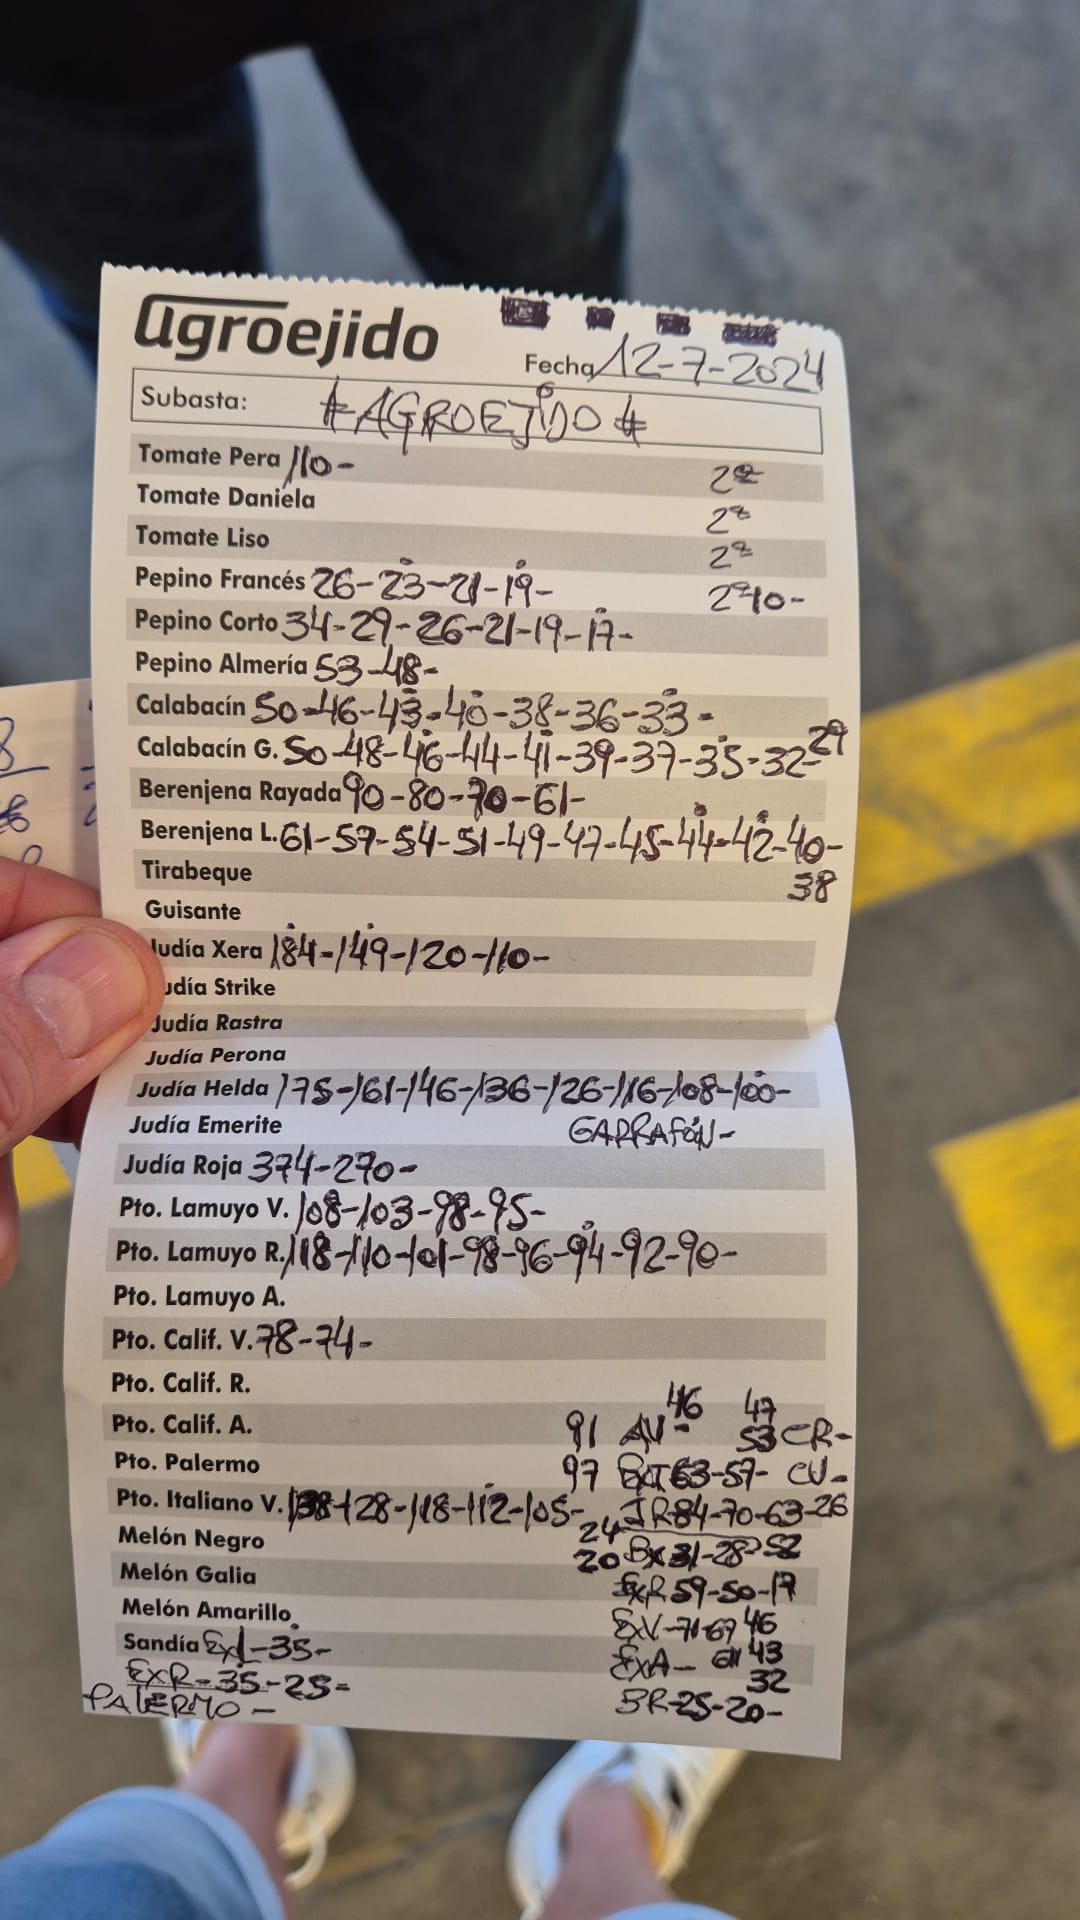 agroejido
Fecha 12-7-2024
Subasta: #AGROEJIDO#
Tomate Pera 110- 2ª
Tomate Daniela 2ª
Tomate Liso 2ª
Pepino Francés 26-23-21-19- 2ª10-
Pepino Corto 34-29-26-21-19-17-
Pepino Almería 53-48-
Calabacín 50-46-43-40-38-36-33-
Calabacín G. 50-48-46-44-41-39-37-35-32-29
Berenjena Rayada 90-80-70-61-
Berenjena L. 61-57-54-51-49-47-45-44-42-40-
Tirabeque 38
Guisante
Judía Xera 184-149-120-110-
Judía Strike
Judía Rastra
Judía Perona
Judía Helda 175-161-146-136-126-116-108-100-
Judía Emerite GARRAFÓN-
Judía Roja 374-270-
Pto. Lamuyo V. 108-103-98-95-
Pto. Lamuyo R. 118-110-101-98-96-94-92-90-
Pto. Lamuyo A.
Pto. Calif. V. 78-74-
Pto. Calif. R. 46 47
Pto. Calif. A. 91 AV- 53 CR-
Pto. Palermo 97 EXT 63-57- CV-
Pto. Italiano V. 138-128-118-112-105- JR-84-70-63-26
Melón Negro 24 20 Bx 31-28 52
Melón Galia ExR 59-50-17
Melón Amarillo ExV-71-67 46
Sandía ExL-35- ExA- 61 43
ExR-35-25- 32
PALERMO - BR-25-20-